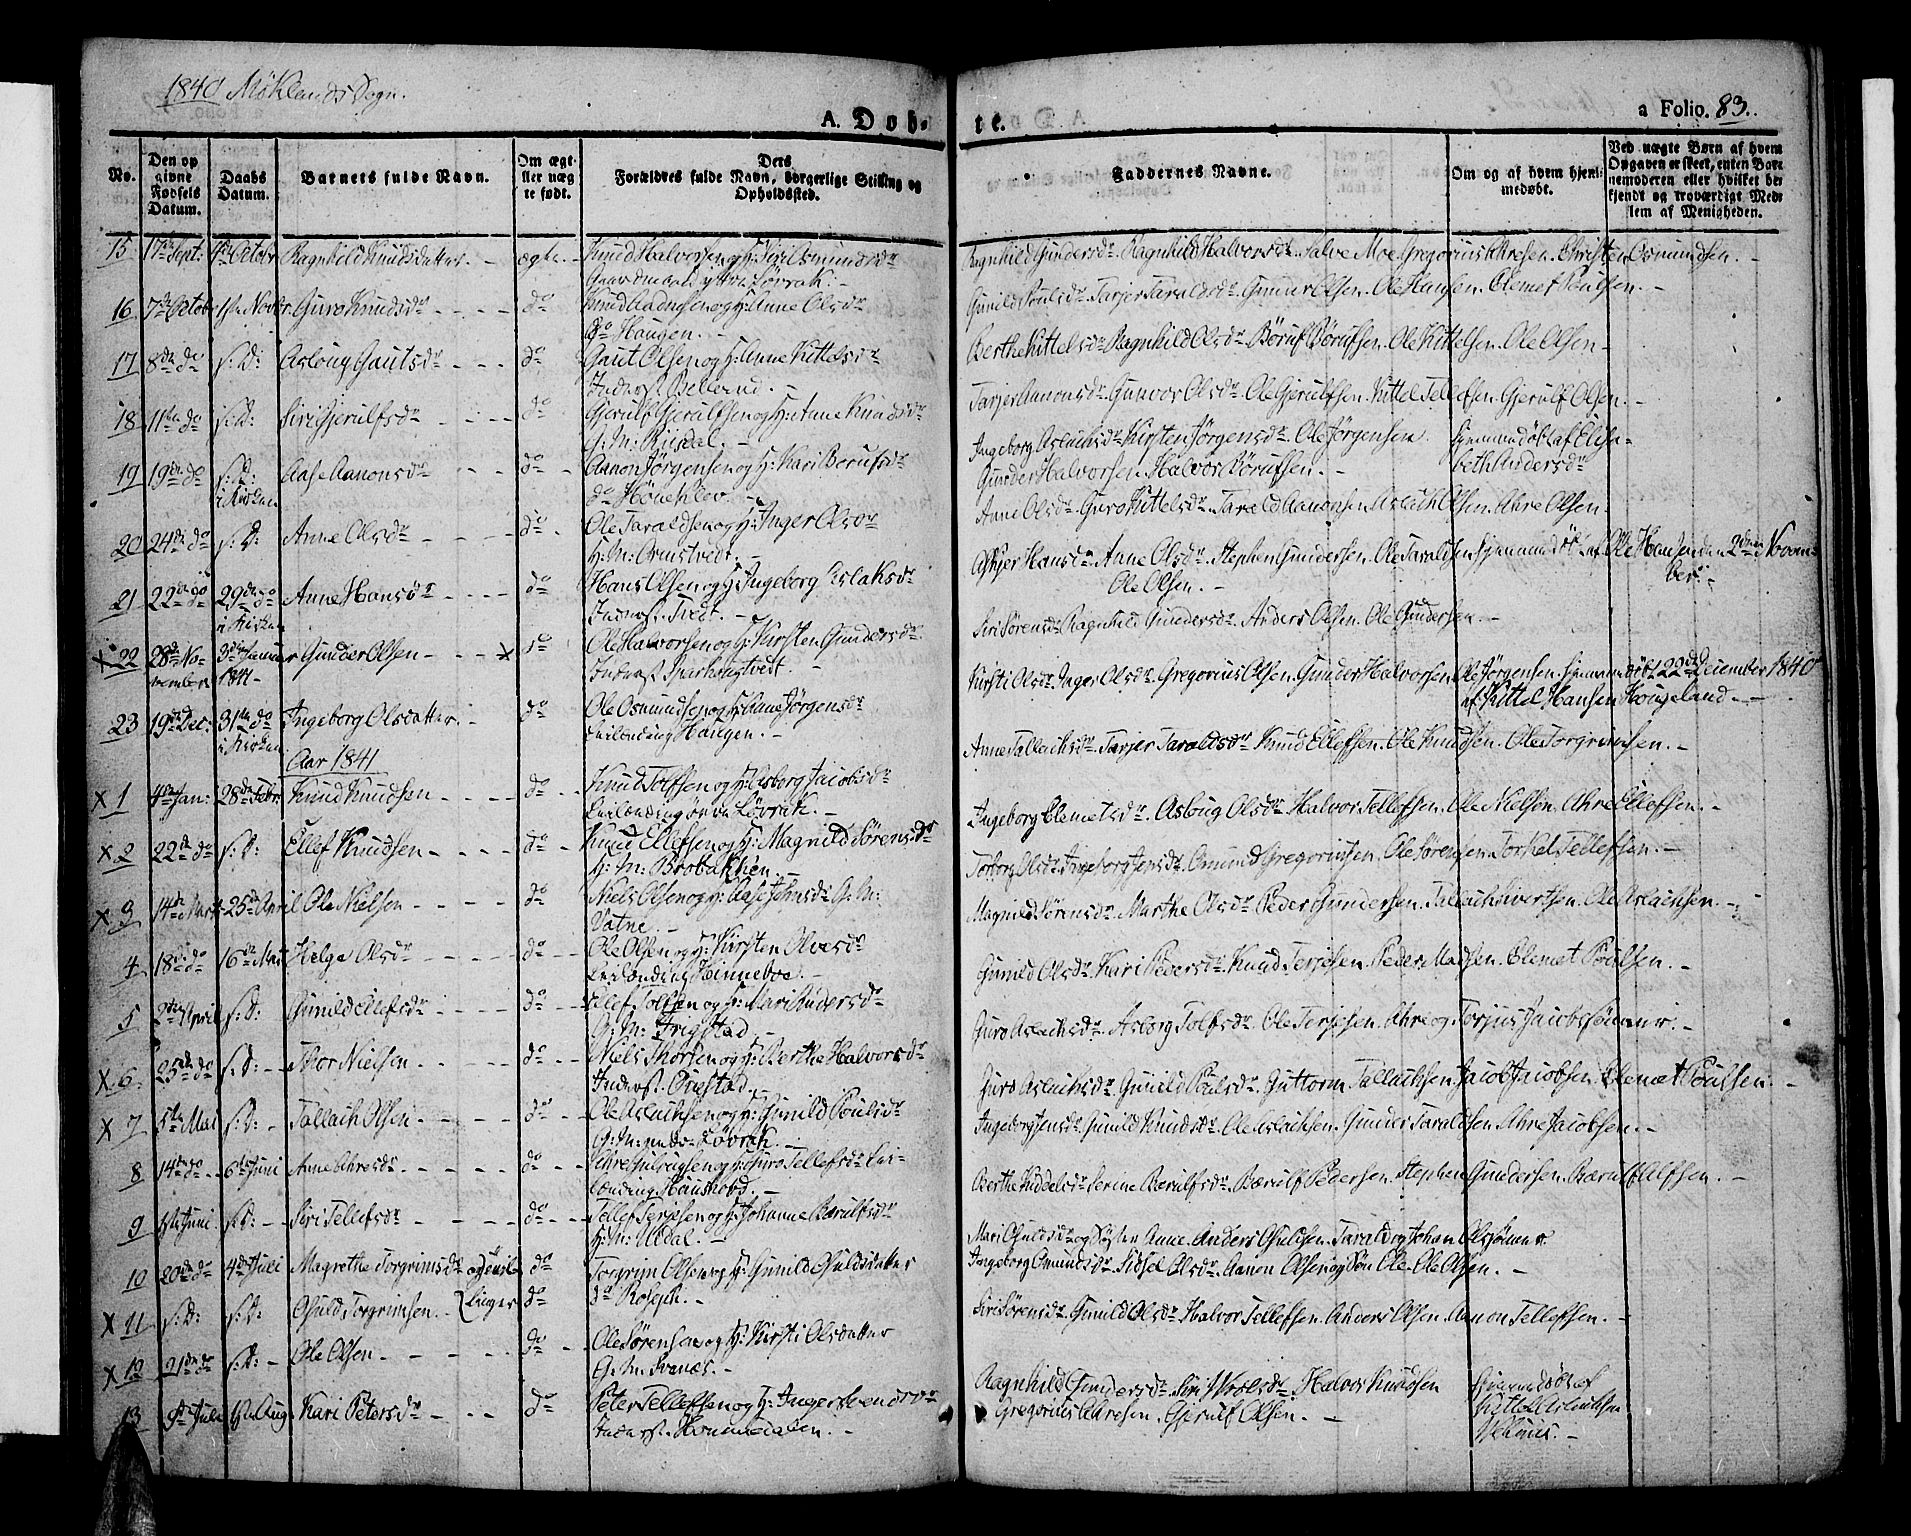 1840 Möklands Sogn.
A. Dob-
te.
a Folio. 83.
No.
Den op
givne
Fødsels
Datum.
Daabs
Datum.
Barnets fulde Navn.
Om ægt
ller uæg
te født.
Ders
Forældres fulde Navn, borgerlige Stilling og
Opholdssted.
Faddernes Navne.
Om og af hvem hjem-
medøbt.
Ved uægte Børn af hvem
Opgaven er skeet, enten Bar
nemoderen eller hvilket be
kjendt og troværdigt Med
lem af Menigheden.
15 17de Sept: 4de Octobr Ragnhild Knudsdatter. - ægte. - Knud Halvorsen og H: Siri Asmundsdr
Gaardmand yttre Lövrak. -
Ragnhild Gundersdr. Ragnhild Halvorsdr. Salve Moe. Gregorius Ahresen. Christen Osmundsen. -
16 7de Octobr 1ste Novbr Guro Knudsdr - - - - do Knud Aadnesen og H: Anne Olsdr
do Haugen. -
Gunild Poulsdr. Tarjer Taraldsdr. Gunder Olsen. Ole Hansen. Clemet Poulsen. -
17 8de do s: D: Asloug Gautsdr - - - do Gaut Olsen og H: Anne Kittelsdr
Inderst Belland. -
Berthe Kittelsdr Ragnhild Olsdr. Börulf Börulfsen. Ole Kittelsen. Ole Olsen -
18 11te do s: D: Siri Gjerulfsdr - - - do Gjerulf Gjerulfsen og H: Anne Knudsdr
G: M: Risdal. -
Tarjer Aanonsdr. Gunvor Olsdr. Ole Gjerulfsen. Kittel Tellefsen. Gjerulf Olsen. -
19 19de do s: D: i Kirken Aase Aanonsdr - - - do - Aanon Jörgensen og H: Kari Berulfsdr
do Höneklev. -
Ingeborg Aslachsdr Kirsten Jörgensdr. Ole Jörgensen. hjemmedöbt af Elisa-
Gunder Halvorsen. Halvor Börulfsen. - beth Andersdr
20 24de do s: D: Anne Olsdr - - - do - Ole Taraldsen og H: Inger Olsdr
H: M: Ornstvedt. -
Anne Olsdr. Guro Kittelsdr. Tarald Aanonsen. Aslach Olsen. Ahre Olsen. -
21 22de do 29de do i Kirken Anne Hansdr - - - - do Hans Olsen og H: Ingeborg Aslaksdr
Inderst Tvedt. -
Asbjer Hansdr Anne Olsdr. Stephen Gundersen. Ole Taraldsen hjemmedöbt af Ole Hansen den 2den Novem-
Ole Olsen. - ber. -
x 22 28de No-
vember 3die Januar
1841 - Gunder Olsen - - - x do Ole Halvorsen og H: Kirsten Gundersdr
Inderst Sparhougtvedt. -
Siri Sörensdr Ragnhild Gundersdr. Anders Olsen. Ole Gundersen. -
23 19de Dec: 31te do i Kirken Ingeborg Olsdatter. - do Ole Osmundsen og H: Anne Jörgensdr
Leilending Haugen. -
Kirsti Olsdr. Inger Olsdr. Gregorius Olsen. Gunder Halvorsen. Ole Jörgensen. hjemmedöbt 22de December 1840
af Kittel Hansen Hougeland. -
Aar 1841
x 1 4de Jan: 28de Febr: Knud Knudsen - - - - do - Knud Tolfsen og H: Asborg Jacobsdr
Leilending övre Lövrak. -
Anne Tallachsdr. Tarjer Taraldsdr Knud Ellefsen. Ole Knudsen. Ole Torgrimsen. -
x 2 22de do s: D: Ellef Knudsen - - - - do - Knud Ellefsen og H: Magnild Sörensdr
H: M: Brobakken. -
Ingeborg Clemetsdr. Aslaug Olsdr. Halvor Tellefsen. Ole Nielsen. Ahre Ellefsen. -
x 3 14de Marts 25de April Ole Nielsen - - - - do Niels Olsen og H: Aase Jensdr G: M:
Vatne. -
Torborg Olsdr. Ingeborg Jensdr. Omund Gregoriusen. Ole Sörensen. Torkel Tellefsen. -
4 18de do 16de Mai Helge Olsdr - - - - do - Ole Olsen og H: Kirsten Olvesdr
Leilending Hinneboe. -
Magnild Sörensdr. Marthe Olsdr Peder Gundersen. Tallach Sivertsen. Ole Aslachsen. -
5 2den April s: D: Gunild Ellefsdr - - - do - Ellef Tolfsen og H: Mari Andersdr
G: M: Frigstad. -
Gunild Olsdr. Kari Pedersdr. Knud Terjesen. Peder Madsen. Clemet Poulsen. -
x 6 25de do s: D: - Thor Nielsen - - - do - Niels Thorsen og H: Berthe Halvorsdr
Inderst
Guro Aslachsdr. Asborg Tolfsdr. Ole Terjesen. Ahre og Torjus Jacobssönner. -
x 7 5te Mai s: D: - Tallach Olsen - - - do - Ole Aslachsen og H: Gunild Poulsdr
G: M: nedre Lövrak. -
Guro Aslachsdr. Gunild Poulsdr. Guttorm Tallachsen. Jacob Jacobsen. Clemet Poulsen. -
8 14de do - 6te Juni Anne Ahresdr. - - - do - Ahre Gulragsen og H: Guro Tellefsdr Lei-
lending
Ingeborg Jensdr Gunild Knudsdr. Ole Aslachsen. Gunder Taraldsen. Ahre Jacobsen. -
9 1ste Juni s: D: - Siri Tellefsdr - - - do - Tellef Terjesen og H: Johanne Bærulfsdr
H: M: Uldal. -
Berthe Kiddelsdr Serene Berulfsdr. Bærulf Pedersen. Stephen Gundersen. Bærulf Alfsen. -
10 20de do 4de Juli Magrethe Torgrimsdr og do Torgrim Olsen og H: Gunild Osuldsdatter
do -
Mari Osuldsdr og Söster Anne. Anders Osuldsen. Tarald og Johan Olssönner.
x 11 s: D: s: D: Osuld Torgrimsen. - do
Ingeborg Omundsdr. Sidsel Olsdr. Aanon Olsen og Sön Ole. Ole Olsen. -
x 12 21de do s: D: - Ole Olsen - - - do - Ole Sörensen og H: Kirsti Olsdatter
G: M: Svenes. -
Siri Sörensdr. Gunild Olsdr Halvor Tellefsen. Anders Olsen. Aanon Tellefsen. -
13 9de Juli 1ste Aug Kari Petersdr - - - do - Peter Tellefsen og H: Inger Svendsdr
Inderst
Ragnhild Gundersdr. Siri Halvor Knudsen hjemmedöbt af
Gregorius Ahresen. Gjerulf Olsen. - Kittel Aslachsen